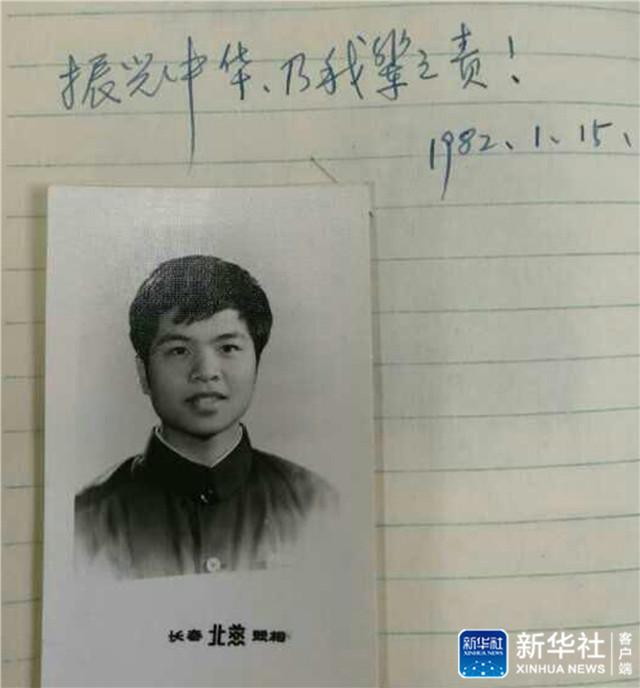 振兴中华、乃我辈之责！
1982、1、15、
长春 北燕 照相
新华社
新华社 客户端
XINHUA NEWS
XINHUA NEWS